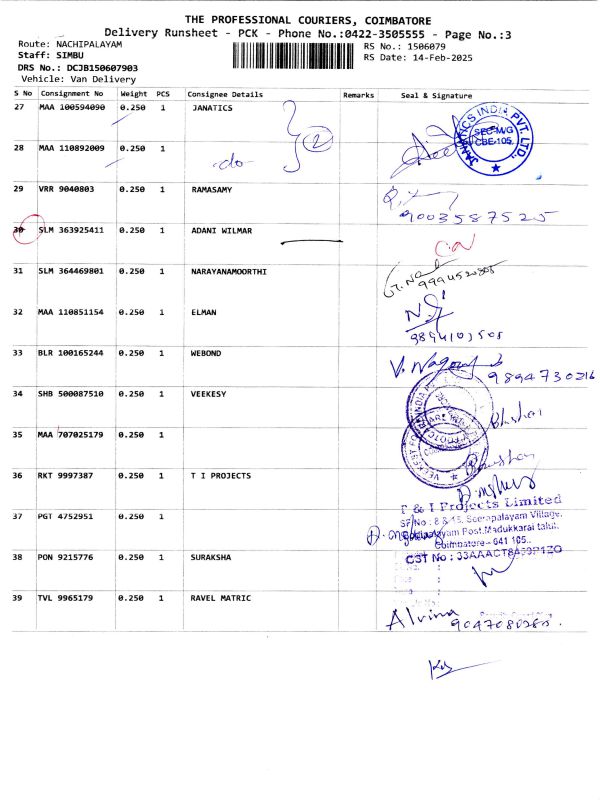 THE PROFESSIONAL COURIERS, COIMBATORE
Delivery Runsheet - PCK - Phone No.:0422-3505555 - Page No.:3
Route: NACHIPALAYAM
Staff: SIMBU
DRS No.: DCJB150607903
Vehicle: Van Delivery
RS No.: 1506079
RS Date: 14-Feb-2025
S No Consignment No Weight PCS Consignee Details Remarks Seal & Signature
27 MAA 100594090 0.250 1 JANATICS 2
JANATICS INDIA PVT. LTD.,
SEC-M/G
CBE-105.
28 MAA 110892009 0.250 1 -do-
29 VRR 9040803 0.250 1 RAMASAMY
9003587525
30 SLM 363925411 0.250 1 ADANI WILMAR
31 SLM 364469801 0.250 1 NARAYANAMOORTHI
32 MAA 110851154 0.250 1 ELMAN
9894103505
33 BLR 100165244 0.250 1 WEBOND
9894730216
34 SHB 500087510 0.250 1 VEEKESY
35 MAA 707025179 0.250 1
36 RKT 9997387 0.250 1 T I PROJECTS
37 PGT 4752951 0.250 1
& I Projects Limited
SF No : 8 & 15, Seerapalayam Village,
Post, Madukkarai taluk,
Coimbatore - 641 105.
38 PON 9215776 0.250 1 SURAKSHA
CST No :
39 TVL 9965179 0.250 1 RAVEL MATRIC
Alvina